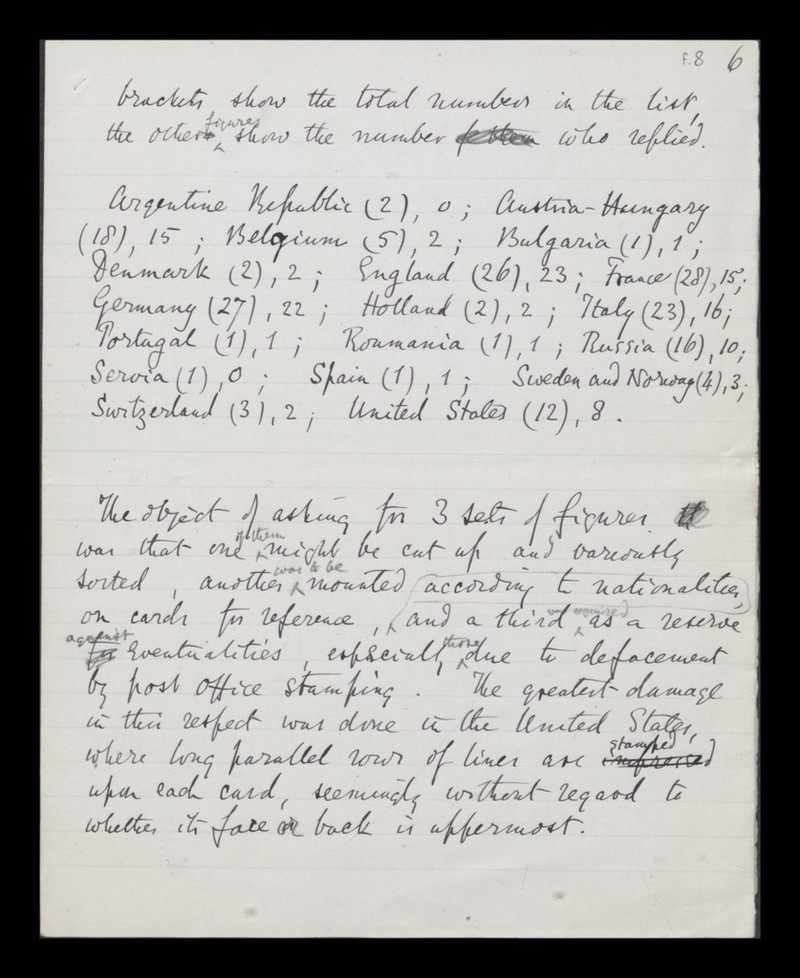 F.8 6
brackets show the total numbers in the list,
the other figures show the number who replied.
Argentine Republic (2), 0 ; Austria-Hungary
(18), 15 ; Belgium (5), 2 ; Bulgaria (1), 1 ;
Denmark (2), 2 ; England (26), 23 ; France (28), 15;
Germany (27), 22 ; Holland (2), 2 ; Italy (23), 16;
Portugal (1), 1 ; Roumania (1), 1 ; Russia (16), 10;
Servia (1), 0 ; Spain (1), 1 ; Sweden and Norway (4), 3;
Switzerland (3), 2 ; United States (12), 8 .
The object of asking for 3 sets of figures
was that one of them might be cut up and variously
sorted , another was to be mounted according to nationalities,
on cards for reference , and a third was required as a reserve
against Eventualities , especially those due to defacement
by post office stamping . The greatest damage
in this respect was done in the United States,
where long parallel rows of lines are stamped
upon each card, seemingly without regard to
whether its face or back is uppermost.